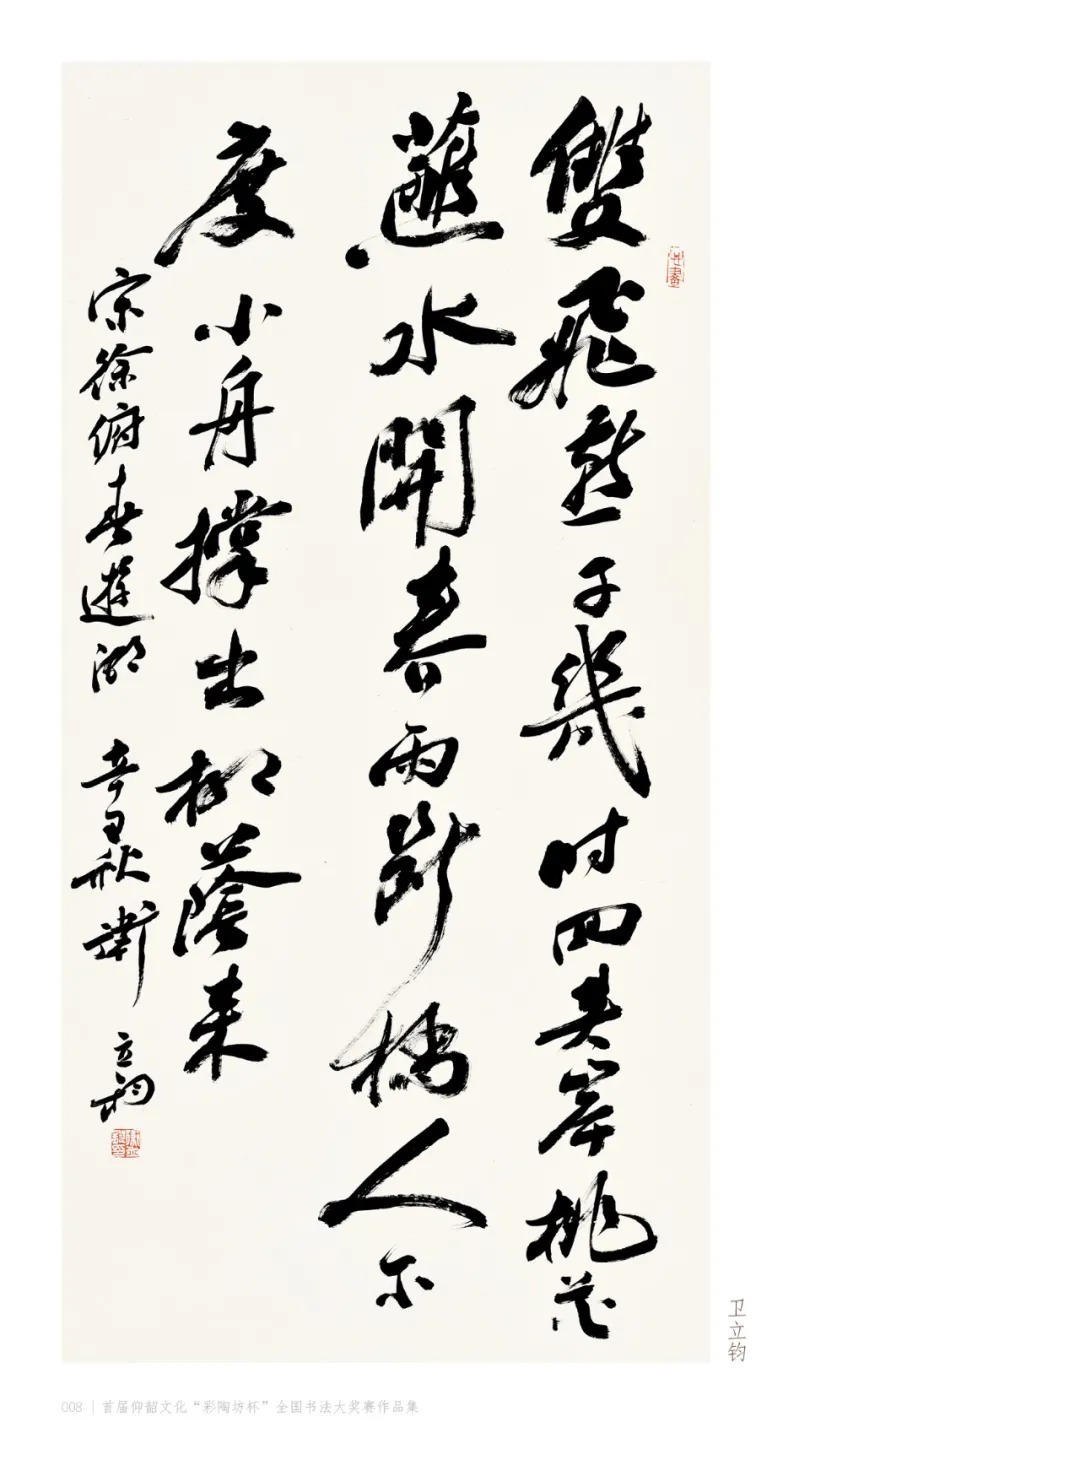 雙飛燕子幾时回夾岸桃花
蘸水開春雨斷橋人不
度小舟撐出柳蔭來
宋徐俯春遊湖 辛丑秋衛立鈞
卫立钧
008 | 首届仰韶文化“彩陶坊杯”全国书法大奖赛作品集